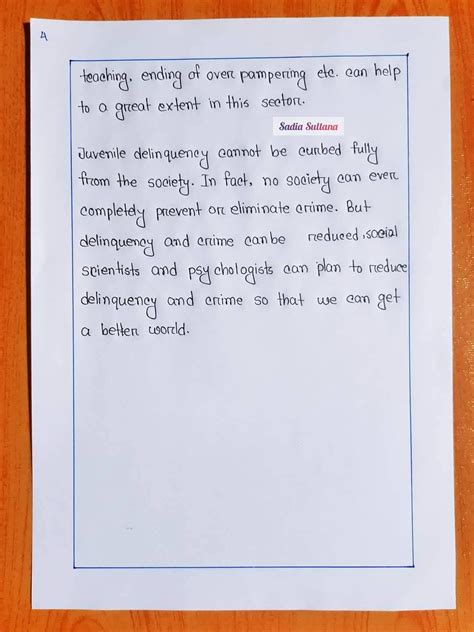 4
teaching, ending of over pampering etc. can help
to a great extent in this sector.
Sadia Sultana
Juvenile delinquency cannot be curbed fully
from the society. In fact, no society can ever
completely prevent or eliminate crime. But
delinquency and crime can be reduced, social
scientists and psychologists can plan to reduce
delinquency and crime so that we can get
a better world.